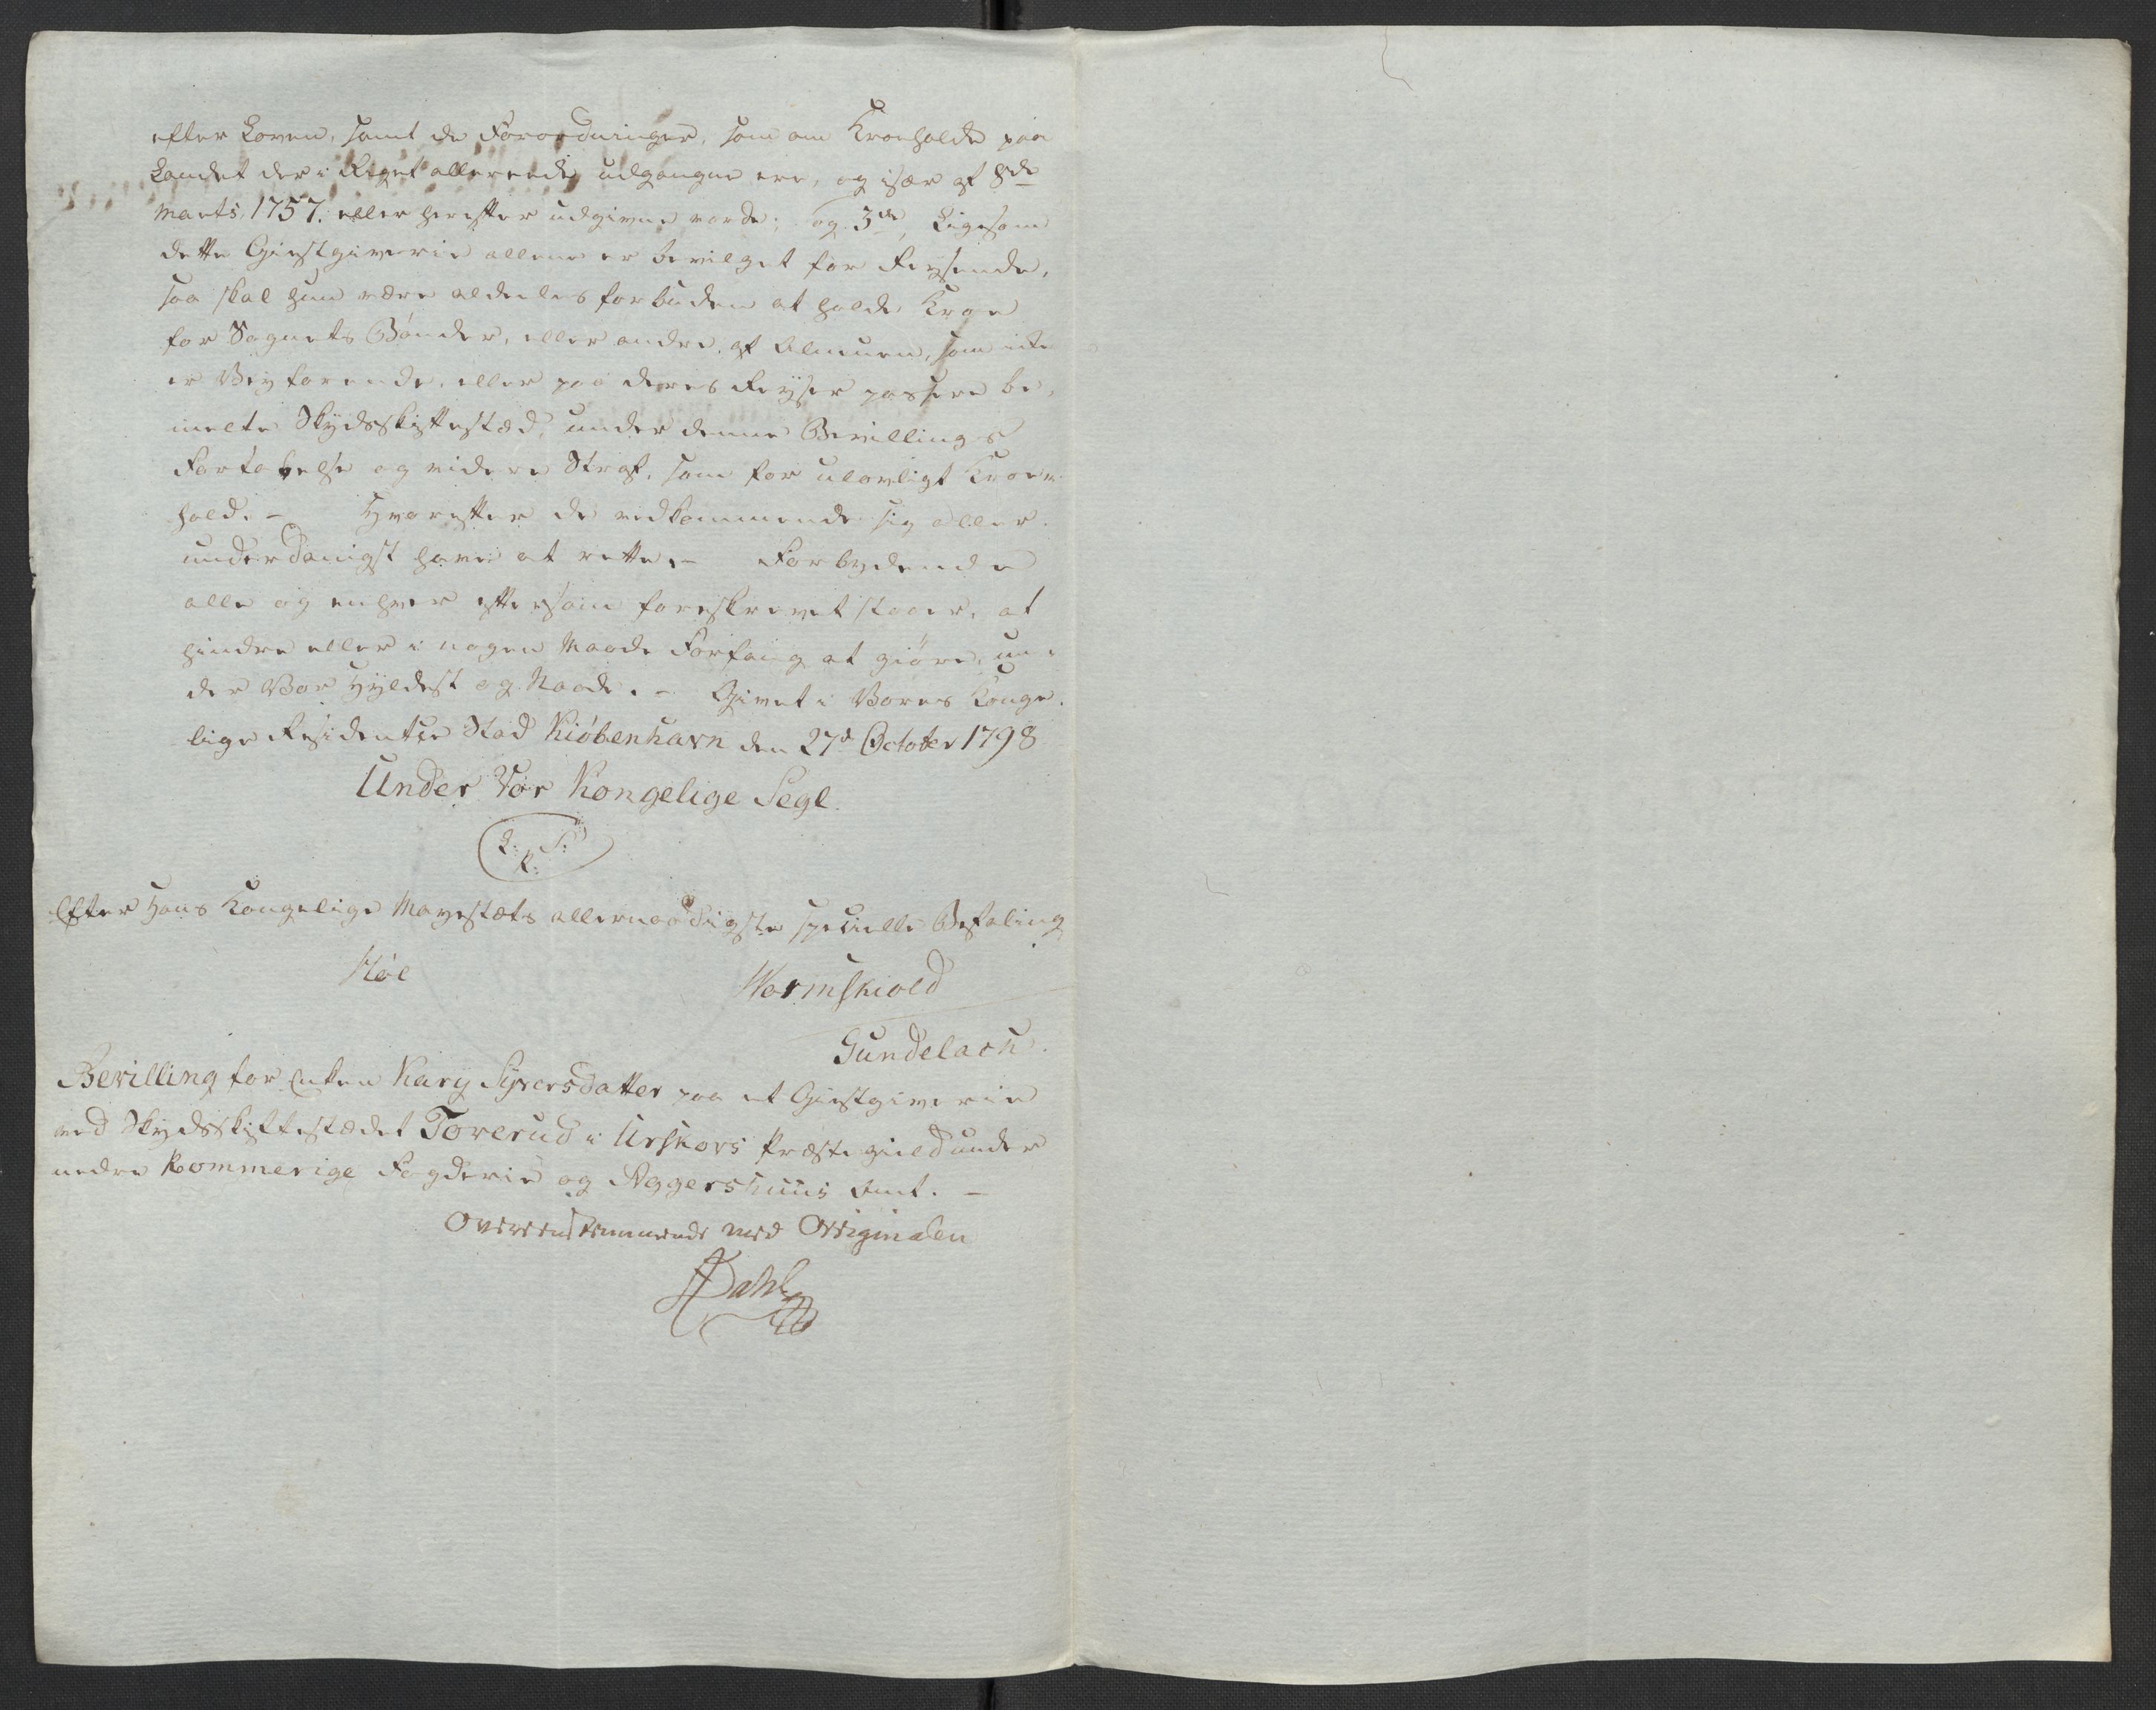 efter Loven, samt de Forordninger, som om Kroehold paa
Landet der i Riget allereede udgangne ere, og især af 8de
Marts 1757. eller herefter udgivne vorde; og 3de, Ligesom
dette Giestgiverie allene er bevilget for Reysende,
saa skal hun være aldeeles forbuden at holde Kroe
for Sognets Bønder, eller andre af Almuen, som icke
er Veyfarende, eller paa deres Reyser passere be,
melte Skydsskiftestæd, under denne Bevillings
Fortabelse og videre Straf, som for ulovligt Kroe,
hold. - Hvorefter de vedkommende sig aller,
underdanigst have at rette. - Forbydende
alle og enhver eftersom foreskrevet staaer, at
hindre eller i nogen Maade Forfang at giøre, un,
der Vor Hyldest og Naade. - Givet i Vores Konge,
lige Residentze Stad Kiøbenhavn den 27d October 1798
Under Vor Kongelige Segl.
L. S.
R.
Efter Hans Kongelige Mayestæts allernaadigste specielle Befaling
Høe Wormskiold
Gundelach.
Bevilling for Enken Kary Syversdatter paa et Giestgiverie
ved Skydsskiftestædet Toverud i Urskovs Præstegield under
nedre Rommerige Fogderie og Aggershuus Amt. -
Overeensstemmende med Originalen
Dahl